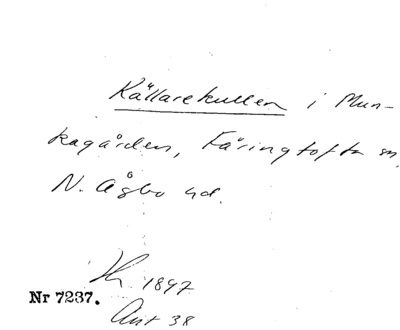 Källarekullen i Mun-
kagården, Färingtofta sn,
N. Åsbo hd.
1897
Nr 7237.
Ant 38